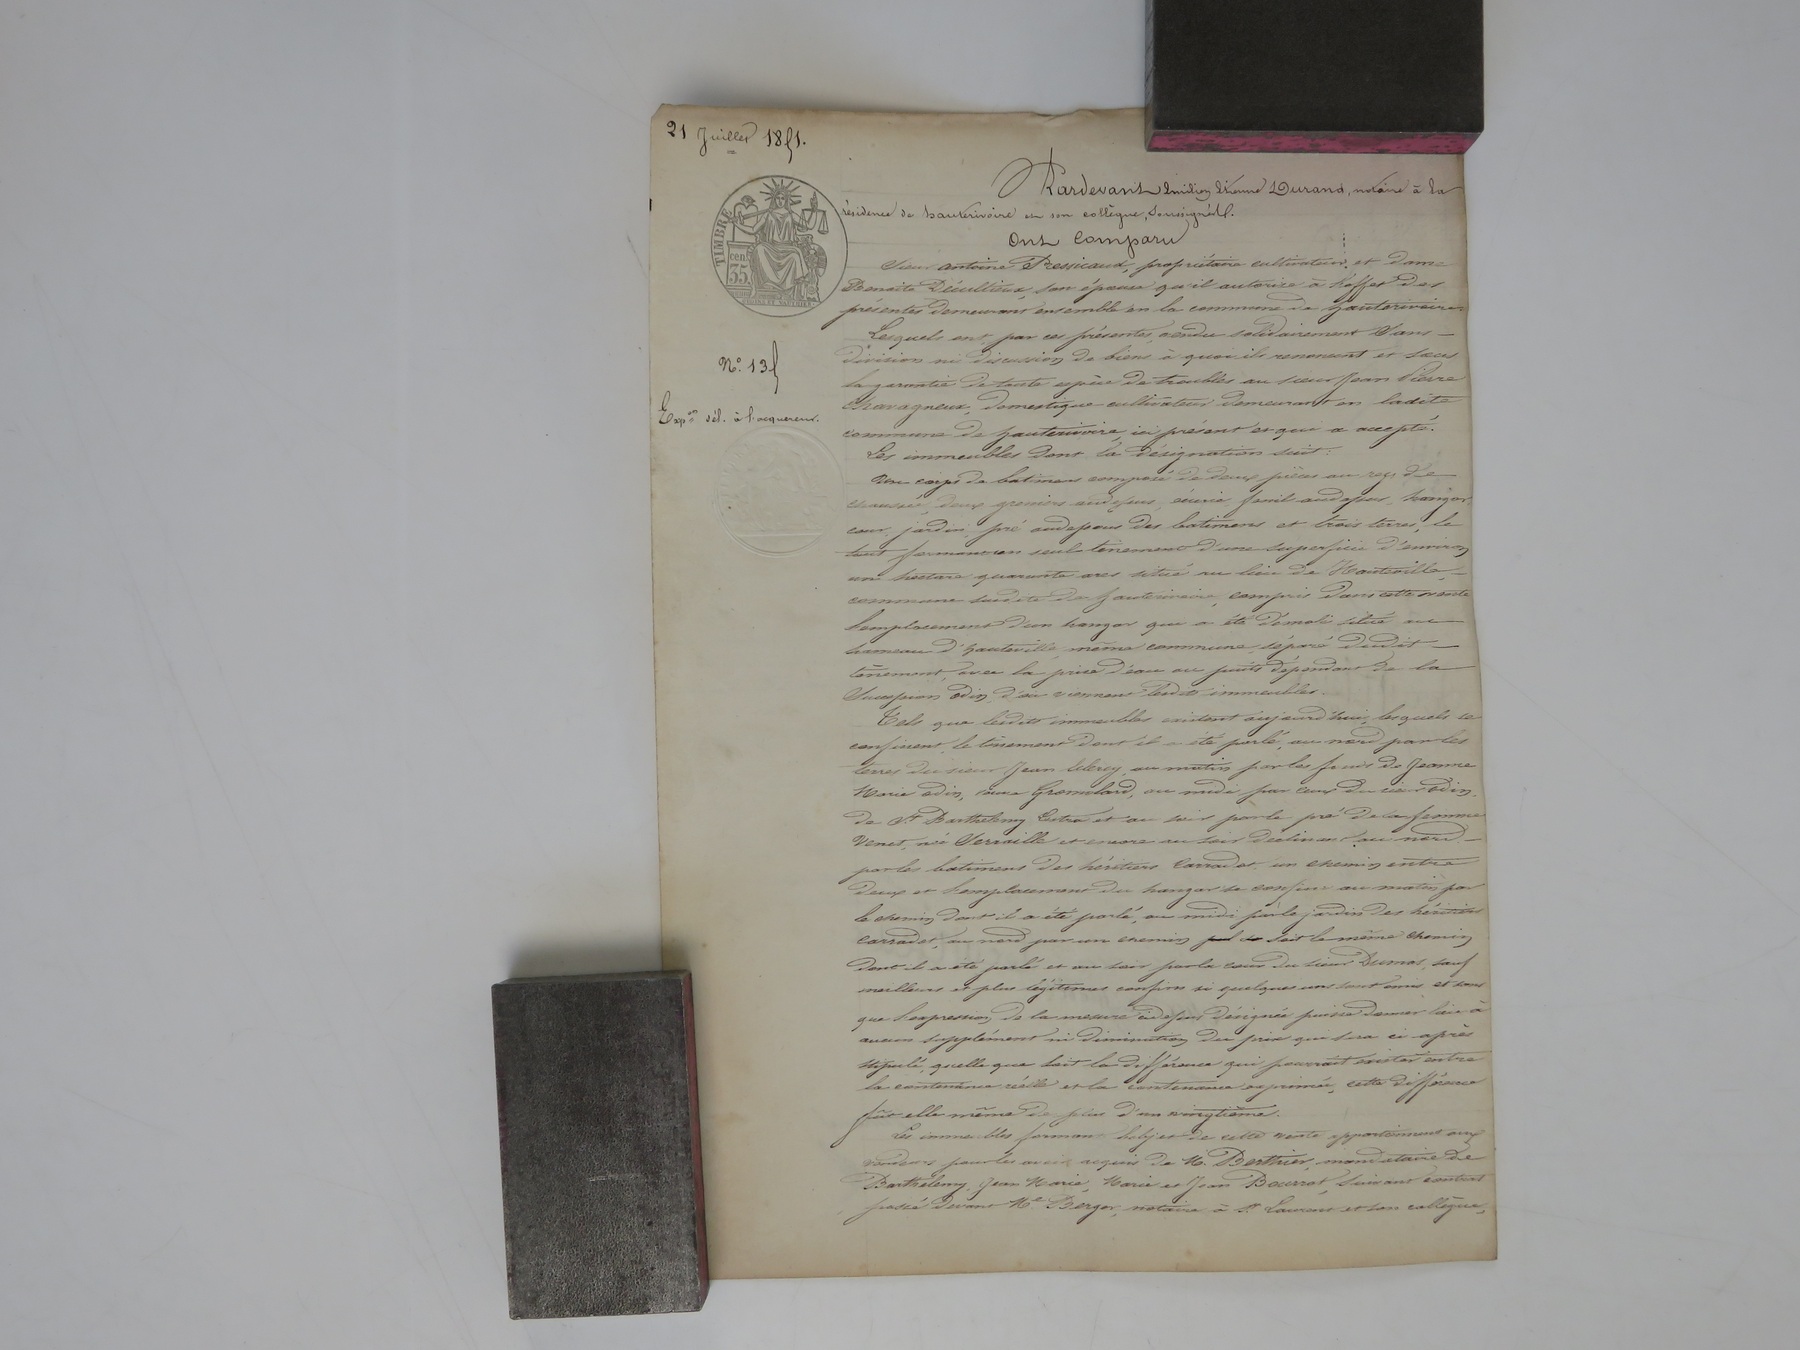 21 Juillet 1851.
TIMBRE
cen. 35
Pardevant Emilien Etienne Durand, notaire à la
résidence de hauterivoire et son collègue, soussignés.
Ont Comparu
Sieur antoine Bessicaud, propriétaire cultivateur, et dame
Benoite Décultieux, son épouse qu'il autorise à l'effet des
présentes demeurant ensemble en la commune de hauterivoire.
N.° 135
Lesquels ont, par ces présentes, vendu solidairement sans
division ni discussion de biens à quoi ils renoncent et sous
la garantie de toute espèce de troubles au sieur Jean Pierre
Chavagneux, domestique cultivateur demeurant en ladite
Exp.on dél. à l'acquereur.
commune de hauterivoire, ici présent et qui a accepté.
Les immeubles dont la désignation suit:
Un corps de batimens composé de deux pièces au rez de
chaussée, deux greniers audessus, écurie, fenil audessus, hangar,
cour, jardin, pré audessous des batimens et trois terres, le
tout formant un seul tènement d'une superficie d'environ
un hectare quarante ares situé au lieu de Hauteville,
commune susdite de hauterivoire, compris dans cette vente
l'emplacement d'un hangar qui a été démoli situé au
hameau d'hauteville même commune, séparé dudit
tènement, avec la prise d'eau au puits dépendant de la
Succession Odin, d'où viennent lesdits immeubles.
Tels que lesdits immeubles existent aujourd'hui, lesquels se
confinent, le tènement dont il a été parlé, au nord par les
terres du sieur Jean Clercy, au matin par les fonds de Jeanne
Marie Odin, veuve Gromolard, au midi par ceux du sieur Odin,
de St Barthélemy Lestra et au soir par le pré de la femme
Venet, née Servaille et encore au soir déclinant au nord
par les batimens des héritiers Carradot un chemin entre
deux et l'emplacement du hangar se confine au matin par
le chemin dont il a été parlé, au midi par le jardin des héritiers
Carradot, au nord par un chemin soit le même chemin
dont il a été parlé et au soir par la cour du sieur Dumas, sauf
meilleurs et plus légitimes confins si quelques uns sont omis et sans
que l'expression de la mesure cidessus désignée puisse donner lieu à
aucun supplément ni diminution du prix qui sera ci après
stipulé, quelle que soit la différence qui pourrait exister entre
la contenance réelle et la contenance exprimée, cette différence
fût elle même de plus d'un vingtième.
Les immeubles formant l'objet de cette vente appartiennent aux
vendeurs pour les avoir acquis de M. Berthier, mandataire de
Barthélemy, Jean Marie, Marie et Jean Bourrat, suivant contrat
passé devant Me Berger, notaire à St Laurent et son collègue,